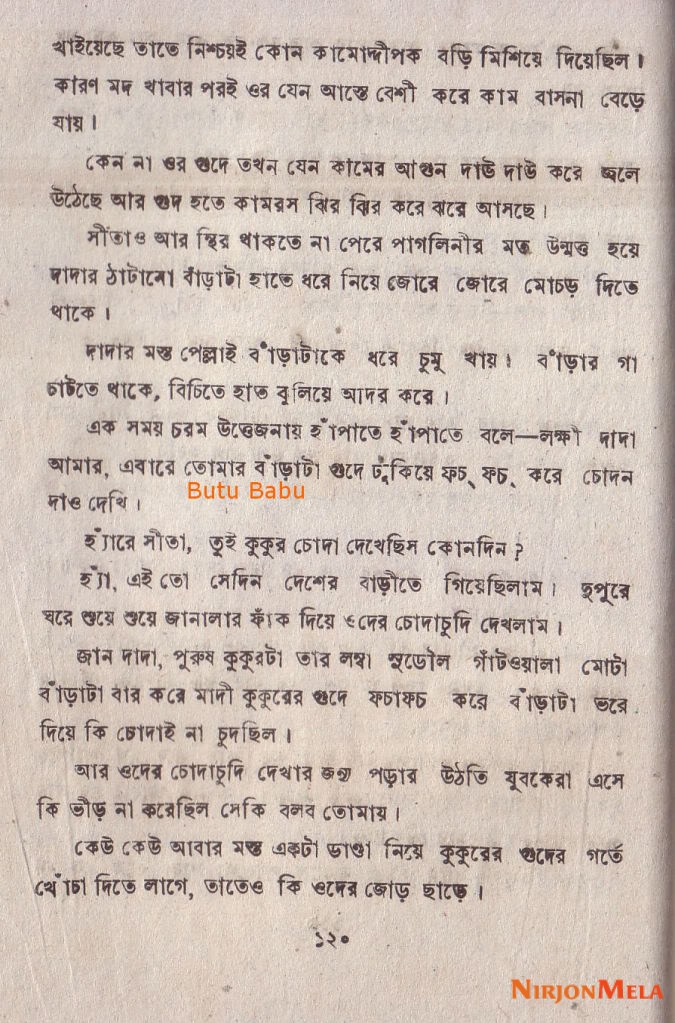 খাইয়েছে তাতে নিশ্চয়ই কোন কামোদ্দীপক বড়ি মিশিয়ে দিয়েছিল।
কারণ মদ খাবার পরই ওর যেন আস্তে বেশী করে কাম বাসনা বেড়ে
যায়।
কেন না ওর গুদে তখন যেন কামের আগুন দাউ দাউ করে জ্বলে
উঠেছে আর গুদ হতে কামরস ঝির ঝির করে ঝরে আসছে।
সীতাও আর স্থির থাকতে না পেরে পাগলিনীর মত উন্মত্ত হয়ে
দাদার ঠাটানো বাঁড়াটা হাতে ধরে নিয়ে জোরে জোরে মোচড় দিতে
থাকে।
দাদার মস্ত পেল্লাই বাঁড়াটাকে ধরে চুমু খায়। বাঁড়ার গা
চাটতে থাকে, বিচিতে হাত বুলিয়ে আদর করে।
এক সময় চরম উত্তেজনায় হাঁপাতে হাঁপাতে বলে—লক্ষী দাদা
আমার, এবারে তোমার বাঁড়াটা গুদে ঢুকিয়ে ফচ্ ফচ্ করে চোদন
দাও দেখি।
Butu Babu
হ্যাঁরে সীতা, তুই কুকুর চোদা দেখেছিস কোনদিন?
হ্যাঁ, এই তো সেদিন দেশের বাড়ীতে গিয়েছিলাম। দুপুরে
ঘরে শুয়ে শুয়ে জানালার ফাঁক দিয়ে ওদের চোদাচুদি দেখলাম।
জান দাদা, পুরুষ কুকুরটা তার লম্বা সুডৌল গাঁটওয়ালা মোটা
বাঁড়াটা বার করে মাদী কুকুরের গুদে ফচাফচ করে বাঁড়াটা ভরে
দিয়ে কি চোদাই না চুদছিল।
আর ওদের চোদাচুদি দেখার জন্য পড়ার উঠতি যুবকেরা এসে
কি ভীড় না করেছিল সেকি বলব তোমায়।
কেউ কেউ আবার মস্ত একটা ডাণ্ডা নিয়ে কুকুরের গুদের গর্তে
খোঁচা দিতে লাগে, তাতেও কি ওদের জোড় ছাড়ে।
১২০
NIRJONMELA